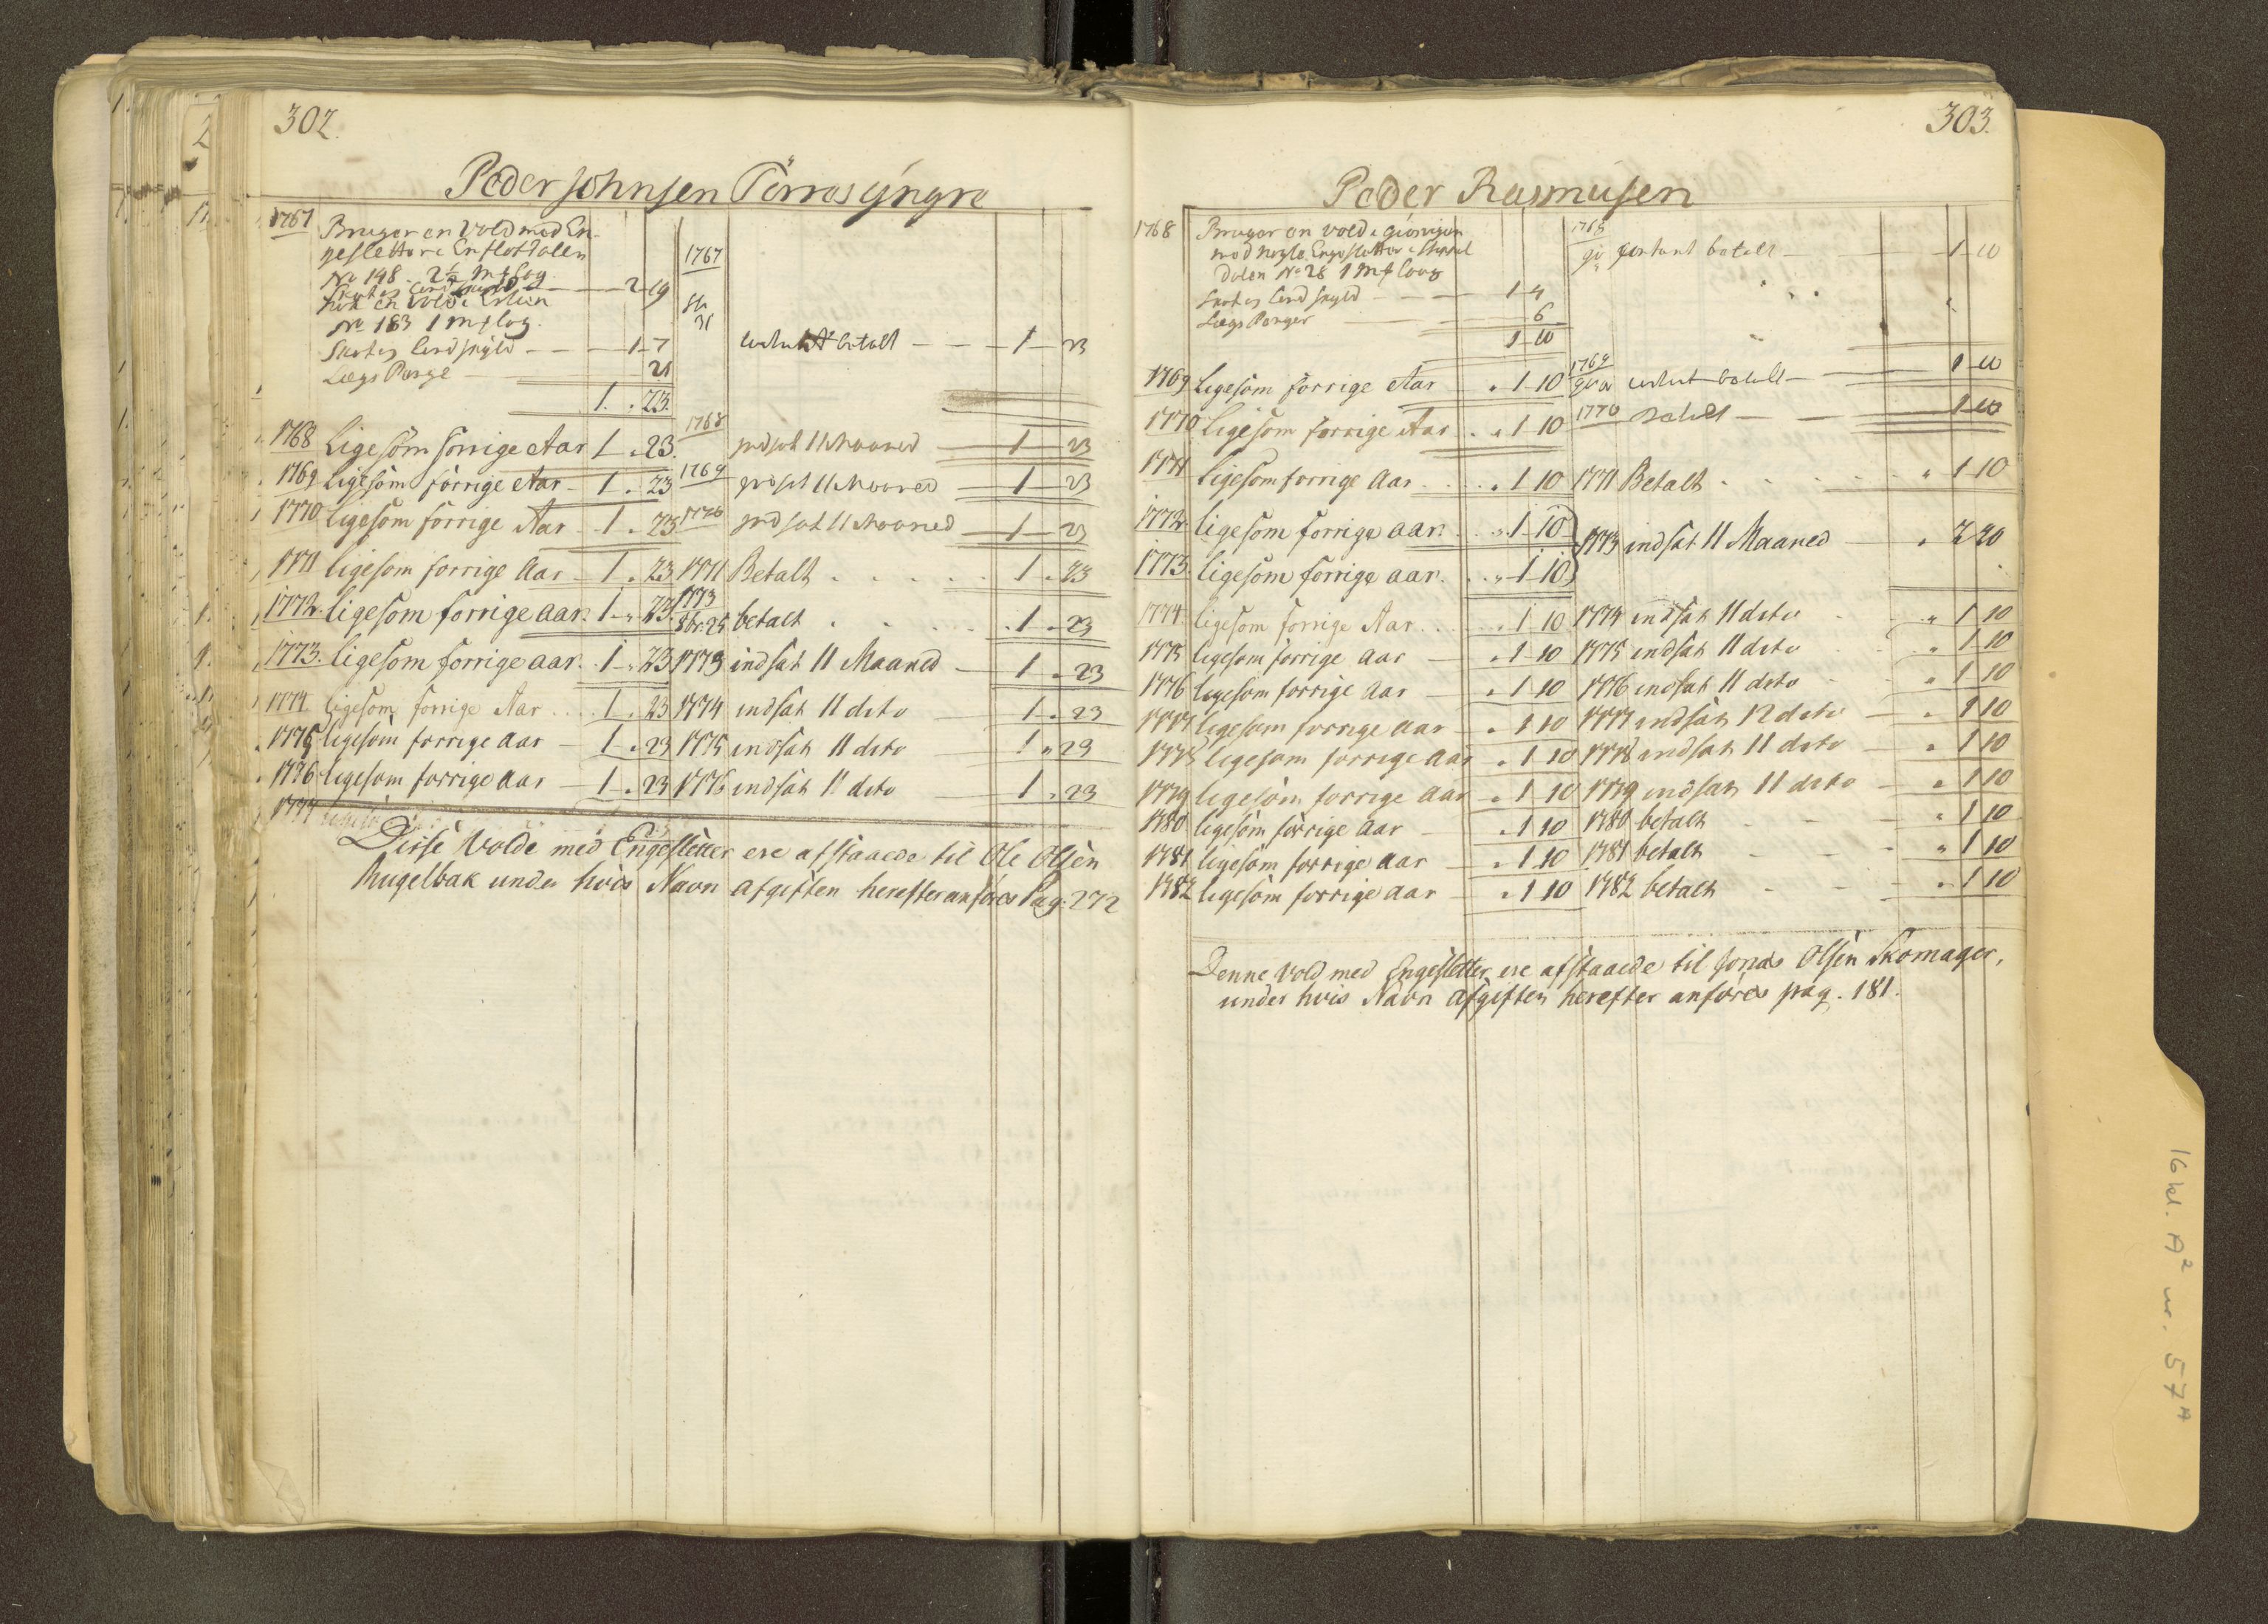 302.
Peder Johnsen Törres yngre
1767 Bruger en Vold med En-
gesletter i Enflotdalen
No 198 - 2½ mf log
Skat og Landskyld - 2 19
Nok en Vold i
No 183 1 mf log.
Skat og Landskyld - 1 - 7
Lægs Penge 21
1 . 23.
1767
31 betalt - 1 - 23
1768 Ligesom forrige Aar 1 . 23. 1768 indsat 11 Maaned 1 - 23
1769 Ligesom forrige Aar - 1 . 23 1769 indsat 11 Maaned 1 - 23
1770 ligesom forrige Aar - 1 . 23. 1770 indsat 11 Maaned 1 - 23
1771 ligesom forrige Aar - 1 . 23 1771 Betalt . . . . . 1 . 23
1772. ligesom forrige aar. 1 - " 23. 1773 8br. 25 betalt . . . . 1 . 23
1773. ligesom forrige aar. 1 - " 23 1773 indsat 11 Maaned - 1 . 23
1774. ligesom forrige Aar . . . . 1 . 23 1774 indsat 11 dito 1 . 23
1775 ligesom forrige aar - 1 . 23 1775 indsat 11 dito 1 " 23
1776 ligesom forrige aar - 1 . 23 1776 indsat 11 dito 1 . 23
1777
Disse Volde med Engesletter ere afstaaede til Ole Olsen
Rugelbak under hvis Navn afgiften herefter anføres Pag. 272
303.
Peder Rasmusen
1768 Bruger en Vold i
med nogle Engesletter i
Dalen No 28 1 mf loug
Skat og Landskyld - 1 - 4
Lægs Penger - 6
1 - 10
1768 betalt - 1 - 10
1769 Ligesom forrige Aar " 1 - 10 1769 betalt - 1 - 10
1770 Ligesom forrige Aar . " 1 10 1770 Betalt - 1 - 10
1771 ligesom forrige Aar . . . " 1 10 1771 Betalt . . . . " 1 10
1772. ligesom forrige aar. . . " 1 - 10
1773. ligesom forrige aar. . . " 1 - 10 1773 indsat 11 Maaned - " 2 20
1774. ligesom forrige Aar . . . . " 1 10 1774 indsat 11 dito . " 1 10
1775 ligesom forrige aar - " 1 10 1775 indsat 11 dito . " 1 10
1776 ligesom forrige aar - " 1 10 1776 indsat 11 dito - " 1 10
1777 ligesom forrige aar - " 1 10 1777 indsat 12 dito - " 1 10
1778 ligesom forrige aar " 1 10 1778 indsat 11 dito - " 1 10
1779 ligesom forrige aar " 1 10 1779 indsat 11 dito - " 1 10
1780 ligesom forrige aar - " 1 10 1780 betalt - - - " 1 10
1781 ligesom forrige aar - " 1 10 1781 betalt - - - " 1 10
1782 ligesom forrige aar - " 1 10 1782 betalt - - - " 1 10
Denne Vold med Engesletter ere afstaaede til Jonas Olsen Skomager,
under hvis Navn Afgiften herefter anføres pag. 181.
16 kl. A² nr. 57ᴬ